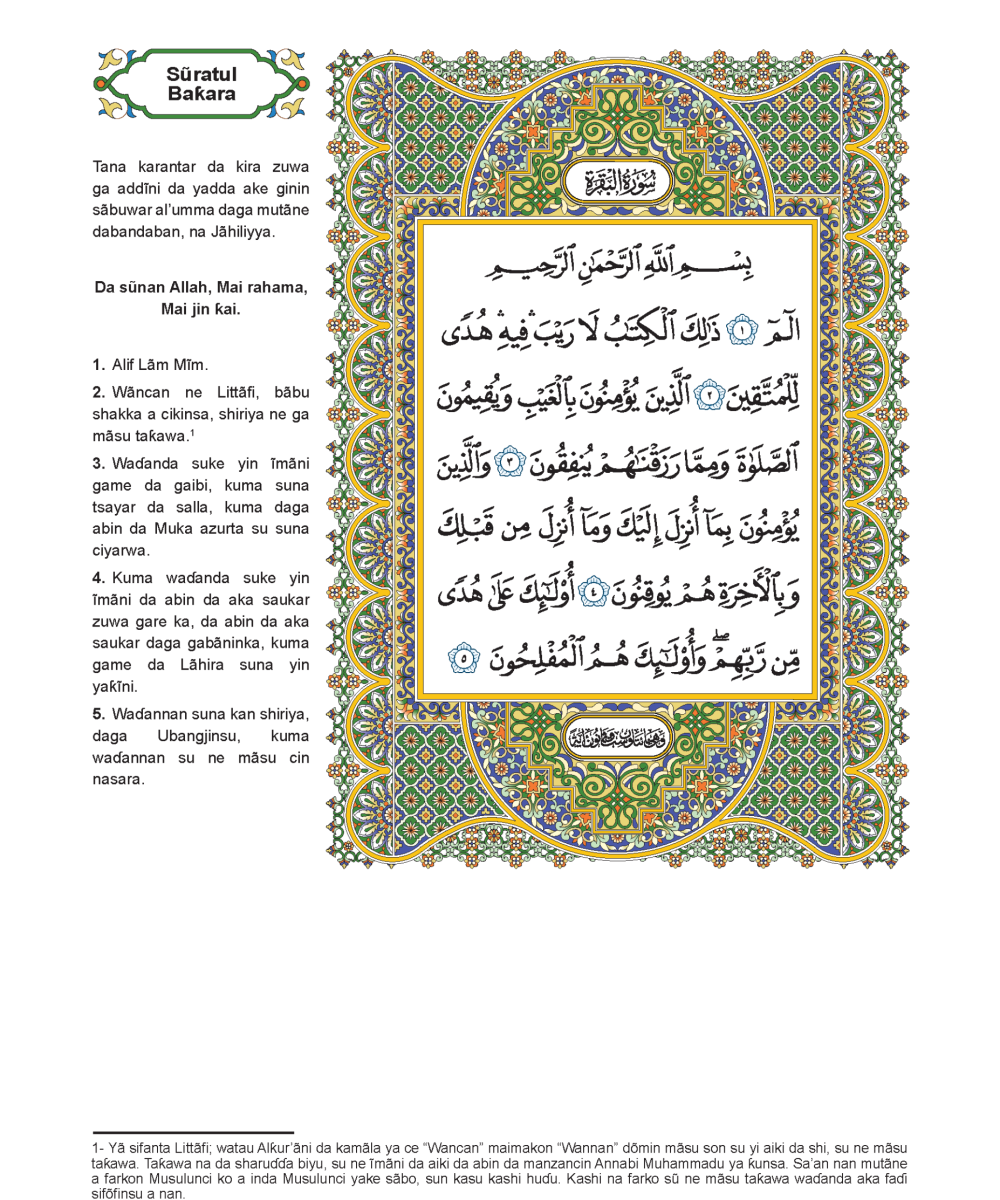 Sũratul
Baƙara
Tana karantar da kira zuwa
ga addĩni da yadda ake ginin
sãbuwar al'umma daga mutãne
dabandaban, na Jãhiliyya.
Da sũnan Allah, Mai rahama,
Mai jin ƙai.
1. Alif Lãm Mĩm.
2. Wãncan ne Littãfi, bãbu
shakka a cikinsa, shiriya ne ga
mãsu taƙawa.¹
3. Waɗanda suke yin ĩmãni
game da gaibi, kuma suna
tsayar da salla, kuma daga
abin da Muka azurta su suna
ciyarwa.
4. Kuma waɗanda suke yin
ĩmãni da abin da aka saukar
zuwa gare ka, da abin da aka
saukar daga gabãninka, kuma
game da Lãhira suna yin
yaƙĩni.
5. Waɗannan suna kan shiriya,
daga Ubangjinsu, kuma
waɗannan su ne mãsu cin
nasara.
سُورَةُ البَقَرَةِ
بِسْمِ ٱللَّهِ ٱلرَّحْمَٰنِ ٱلرَّحِيمِ
الٓمٓ ١ ذَٰلِكَ ٱلْكِتَٰبُ لَا رَيْبَ ۛ فِيهِ ۛ هُدًى
لِّلْمُتَّقِينَ ٢ ٱلَّذِينَ يُؤْمِنُونَ بِٱلْغَيْبِ وَيُقِيمُونَ
ٱلصَّلَوٰةَ وَمِمَّا رَزَقْنَٰهُمْ يُنفِقُونَ ٣ وَٱلَّذِينَ
يُؤْمِنُونَ بِمَآ أُنزِلَ إِلَيْكَ وَمَآ أُنزِلَ مِن قَبْلِكَ
وَبِٱلْأَخِرَةِ هُمْ يُوقِنُونَ ٤ أُو۟لَٰٓئِكَ عَلَىٰ هُدًى
مِّن رَّبِّهِمْ ۖ وَأُو۟لَٰٓئِكَ هُمُ ٱلْمُفْلِحُونَ ٥
1- Yã sifanta Littãfi; watau Alƙur'ãni da kamãla ya ce "Wancan" maimakon "Wannan" dõmin mãsu son su yi aiki da shi, su ne mãsu
taƙawa. Taƙawa na da sharuɗɗa biyu, su ne ĩmãni da aiki da abin da manzancin Annabi Muhammadu ya ƙunsa. Sa'an nan mutãne
a farkon Musulunci ko a inda Musulunci yake sãbo, sun kasu kashi huɗu. Kashi na farko sũ ne mãsu taƙawa waɗanda aka faɗi
sifõfinsu a nan.